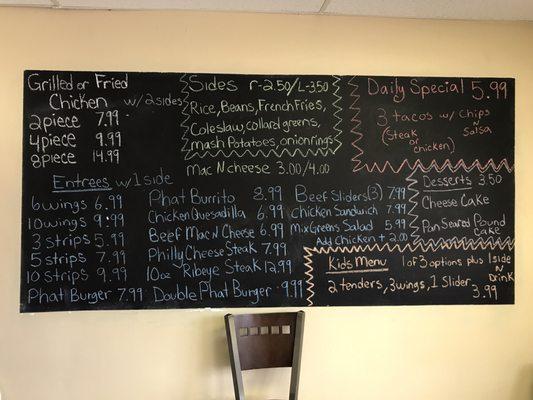 Grilled or Fried
Chicken w/2 sides
2 piece 7.99
4 piece 9.99
8 piece 14.99
Sides r-2.50/L-3.50
Rice, Beans, French Fries,
Coleslaw, collard greens,
mash Potatoes, onion rings
Mac N cheese 3.00/4.00
Daily Special 5.99
3 tacos w/ Chips
N
Salsa
(Steak
or
chicken)
Entrees w/1 side
6 wings 6.99
10 wings 9.99
3 strips 5.99
5 strips 7.99
10 strips 9.99
Phat Burger 7.99
Phat Burrito 8.99
Chicken Quesadilla 6.99
Beef Mac N Cheese 6.99
Philly Cheese Steak 7.99
10oz Ribeye Steak 12.99
Double Phat Burger 9.99
Beef Sliders (3) 7.99
Chicken Sandwich 7.99
Mix Greens Salad 5.99
Add Chicken + 2.00
Desserts 3.50
Cheese Cake
Pan Seared Pound
Cake
Kids Menu 1 of 3 options plus 1 side
N
Drink
2 tenders, 3 wings, 1 Slider
3.99